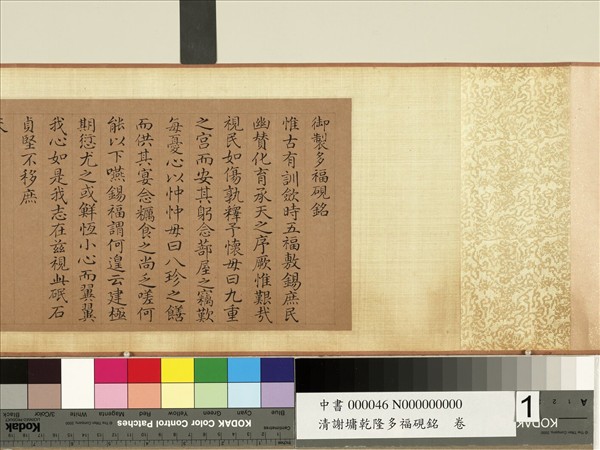 御製多福硯銘
惟古有訓斂時五福敷錫庶民
幽贊化育承天之序厥惟艱哉
視民如傷孰釋予懷毋曰九重
之宮而安其躬念蔀屋之竊歎
每憂心以忡忡毋曰八珍之饍
而供其宴念糲食之尚乏嗟何
能以下嚥錫福謂何遑云建極
期愆尤之或鮮恆小心而翼翼
我心如是我志在茲視此硯石
貞堅不移庶
Black
3/Color
White
Magenta
Red
Yellow
Green
Cyan
Blue
Kodak
KODAK Color Control Patches
中書 000046 N000000000
清謝墉乾隆多福硯銘 卷
1
KODAK
A 1 2